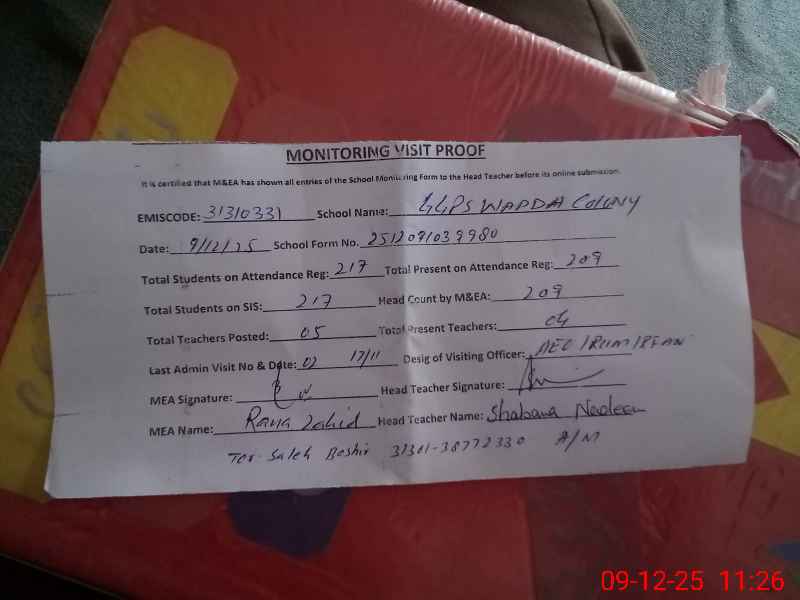 MONITORING VISIT PROOF
It is certified that M&EA has shown all entries of the School Monitoring Form to the Head Teacher before its online submission.
EMISCODE: 31310331 School Name: GGPS WAPDA COLONY
Date: 9/12/25 School Form No. 2512091039980
Total Students on Attendance Reg: 217 Total Present on Attendance Reg: 209
Total Students on SIS: 217 Head Count by M&EA: 209
Total Teachers Posted: 05 Total Present Teachers: 04
Last Admin Visit No & Date: 02 17/11 Desig of Visiting Officer: AEO IRUM IRFAN
MEA Signature: Head Teacher Signature:
MEA Name: Rana Zahid Head Teacher Name: Shabana Nadeem
Saleh Bashir A/M
09-12-25 11:26